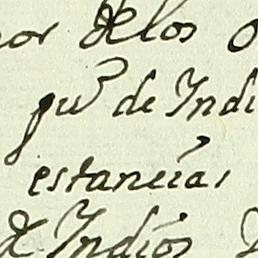 or de los
de Indi
estancias
de Indios